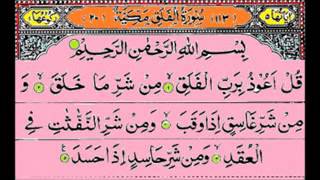 سُوْرَةُ الْفَلَقِ مَكِّيَّةٌ
بِسْمِ اللهِ الرَّحْمٰنِ الرَّحِيْمِ
قُلْ اَعُوْذُ بِرَبِّ الْفَلَقِ ۙ مِنْ شَرِّ مَا خَلَقَ ۙ وَ
مِنْ شَرِّ غَاسِقٍ اِذَا وَقَبَ ۙ وَمِنْ شَرِّ النَّفّٰثٰتِ فِي
الْعُقَدِ ۙ وَمِنْ شَرِّ حَاسِدٍ اِذَا حَسَدَ